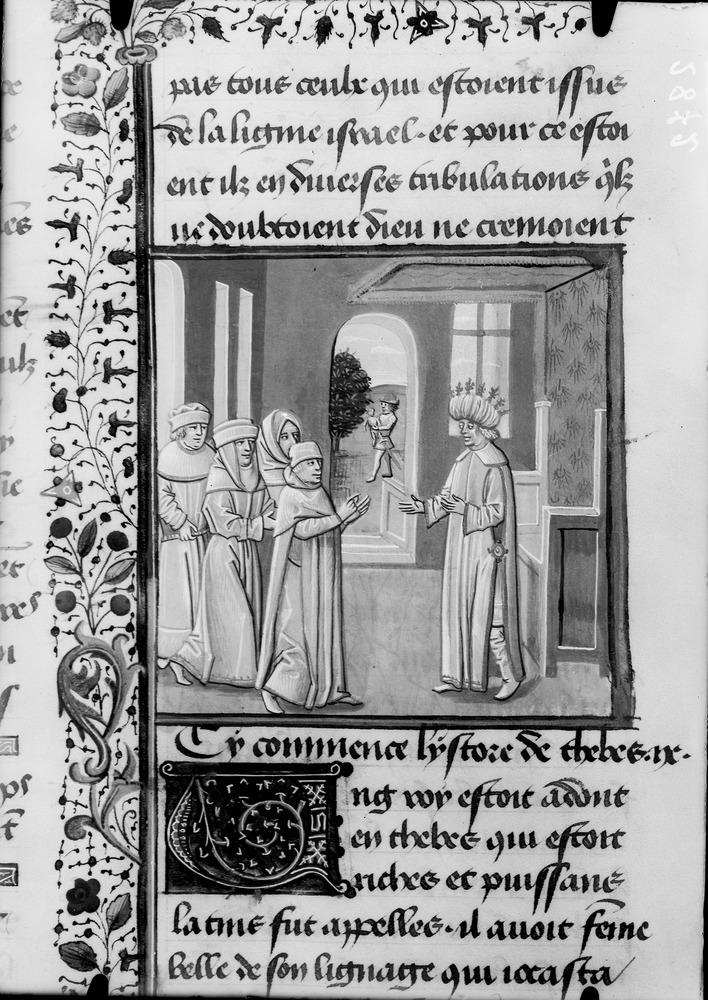 pas tous ceulx qui estoient issus
de la ligme israel. et pour ce estoi
ent ilz en diuerses tribulations q̃lz
ne doubtoient dieu ne cremoient
Cy commence lystore de thebes. ix.
Ung roy estoit adont
en thebes qui estoit
riches et puissans
laius fut appelles. il auoit fẽme
belle de son lignage qui iocasta
2872